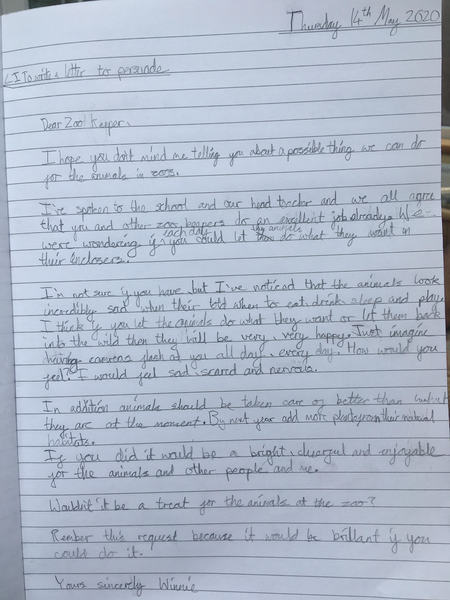 Thursday 14th May 2020
L.I To write a letter to persuade
Dear Zoo Keeper,
I hope you don't mind me telling you about a possible thing we can do
for the animals in zoos.
I've spoken to the school and our head teacher and we all agree
that you and other zoo keepers do an excellent job already. We
each day the animals
were wondering if you could let do what they want in
their enclosers.
I'm not sure if you have but I've noticed that the animals look
incredibly sad when their told when to eat, drink sleep and play.
I think if you let the animals do what they want or let them back
into the wild then they will be very, very happy. Just imagine
having camera flash at you all day, every day. How would you
feel? I would feel sad, scared and nervous.
In addition animals should be taken care of better than what
they are at the moment. By next year add more plants from their natural
habitats.
If you did it would be a bright, cheerful and enjoyable
for the animals and other people and me.
Wouldn't it be a treat for the animals at the zoo?
Rember this request because it would be brillant if you
could do it.
Yours sincerly Winnie